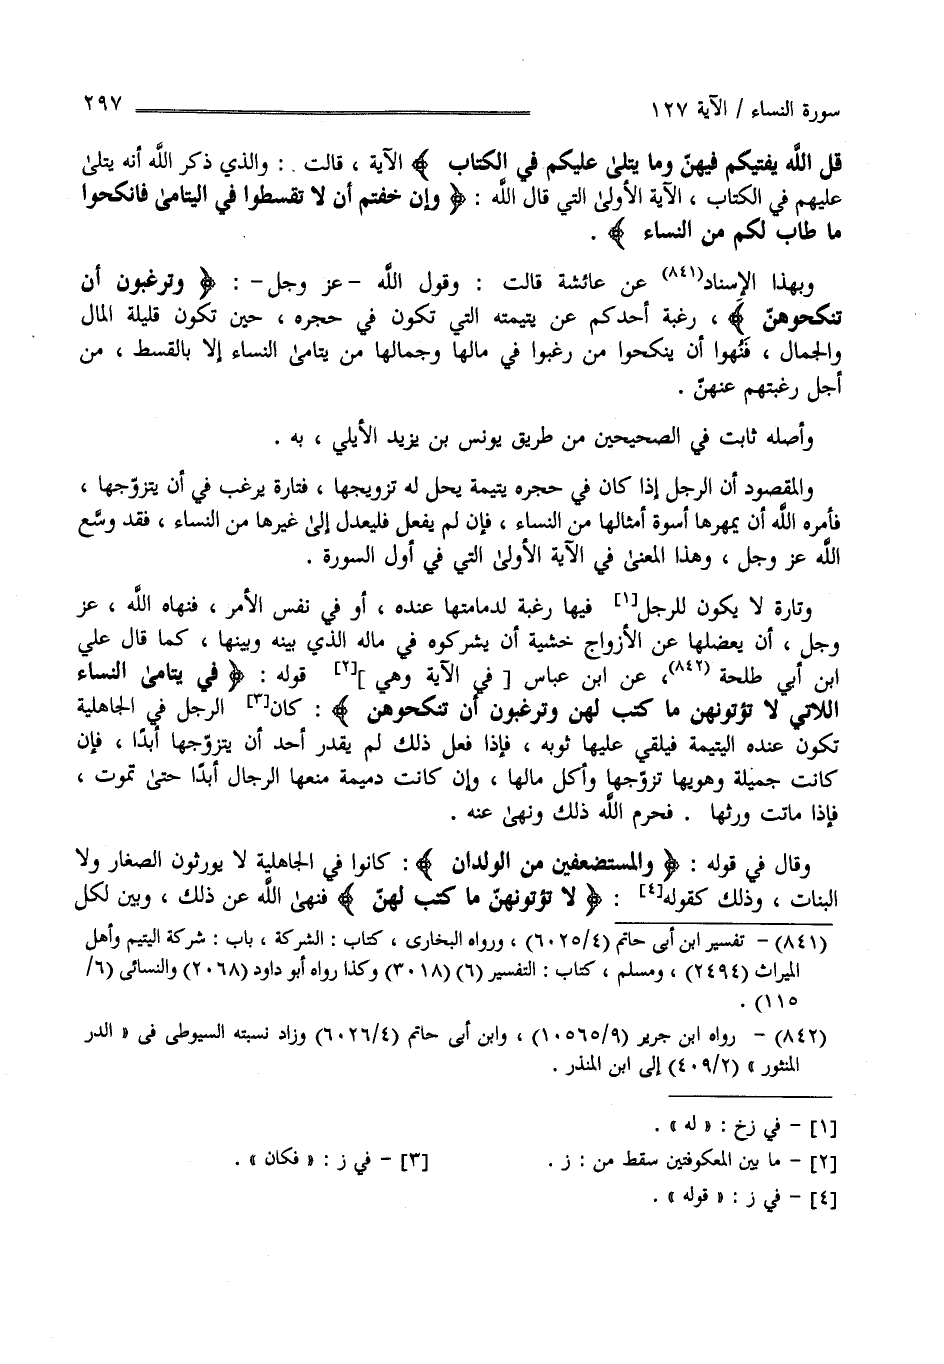 سورة النساء / الآية ١٢٧ ٢٩٧
قل اللَّه يفتيكم فيهنّ وما يتلىٰ عليكم في الكتاب ﴾ الآية ، قالت : والذي ذكر اللَّه أنه يتلىٰ
عليهم في الكتاب ، الآية الأولىٰ التي قال اللَّه : ﴿ وإن خفتم أن لا تقسطوا في اليتامىٰ فانكحوا
ما طاب لكم من النساء ﴾ .
وبهذا الإسناد(٨٤١) عن عائشة قالت : وقول اللَّه -عز وجل- : ﴿ وترغبون أن
تنكحوهنّ ﴾ ، رغبة أحدكم عن يتيمته التي تكون في حجره ، حين تكون قليلة المال
والجمال ، فَنُهوا أن ينكحوا من رغبوا في مالها وجمالها من يتامىٰ النساء إلا بالقسط ، من
أجل رغبتهم عنهنّ .
وأصله ثابت في الصحيحين من طريق يونس بن يزيد الأيلي ، به .
والمقصود أن الرجل إذا كان في حجره يتيمة يحل له تزويجها ، فتارة يرغب في أن يتزوّجها ،
فأمره اللَّه أن يمهرها أسوة أمثالها من النساء ، فإن لم يفعل فليعدل إلىٰ غيرها من النساء ، فقد وسَّع
اللَّه عز وجل ، وهذا المعنىٰ في الآية الأولىٰ التي في أول السورة .
وتارة لا يكون للرجل[١] فيها رغبة لدمامتها عنده ، أو في نفس الأمر ، فنهاه اللَّه ، عز
وجل ، أن يعضلها عن الأزواج خشية أن يشركوه في ماله الذي بينه وبينها ، كما قال علي
ابن أبي طلحة (٨٤٢)، عن ابن عباس [ في الآية وهي ][٢] قوله : ﴿ في يتامىٰ النساء
اللاتي لا تؤتونهن ما كتب لهن وترغبون أن تنكحوهن ﴾ : كان[٣] الرجل في الجاهلية
تكون عنده اليتيمة فيلقي عليها ثوبه ، فإذا فعل ذلك لم يقدر أحد أن يتزوّجها أبدًا ، فإن
كانت جميلة وهويها تزوّجها وأكل مالها ، وإن كانت دميمة منعها الرجال أبدًا حتىٰ تموت ،
فإذا ماتت ورثها . فحرم اللَّه ذلك ونهىٰ عنه .
وقال في قوله : ﴿ والمستضعفين من الولدان ﴾ : كانوا في الجاهلية لا يورثون الصغار ولا
البنات ، وذلك كقوله[٤] : ﴿ لا تؤتونهنّ ما كتب لهنّ ﴾ فنهىٰ اللَّه عن ذلك ، وبين لكل
(٨٤١) - تفسير ابن أبى حاتم (٦٠٢٥/٤) ، ورواه البخارى ، كتاب : الشركة ، باب : شركة اليتيم وأهل
الميراث (٢٤٩٤) ، ومسلم ، كتاب : التفسير (٦) (٣٠١٨) وكذا رواه أبو داود (٢٠٦٨) والنسائى (٦/
١١٥) .
(٨٤٢) - رواه ابن جرير (١٠٥٦٥/٩) ، وابن أبى حاتم (٦٠٢٦/٤) وزاد نسبته السيوطى فى « الدر
المنثور » (٤٠٩/٢) إلى ابن المنذر .
[١] - في زخ : « له » .
[٢] - ما بين المعكوفتين سقط من : ز . [٣] - في ز : « فكان » .
[٤] - في ز : « قوله » .